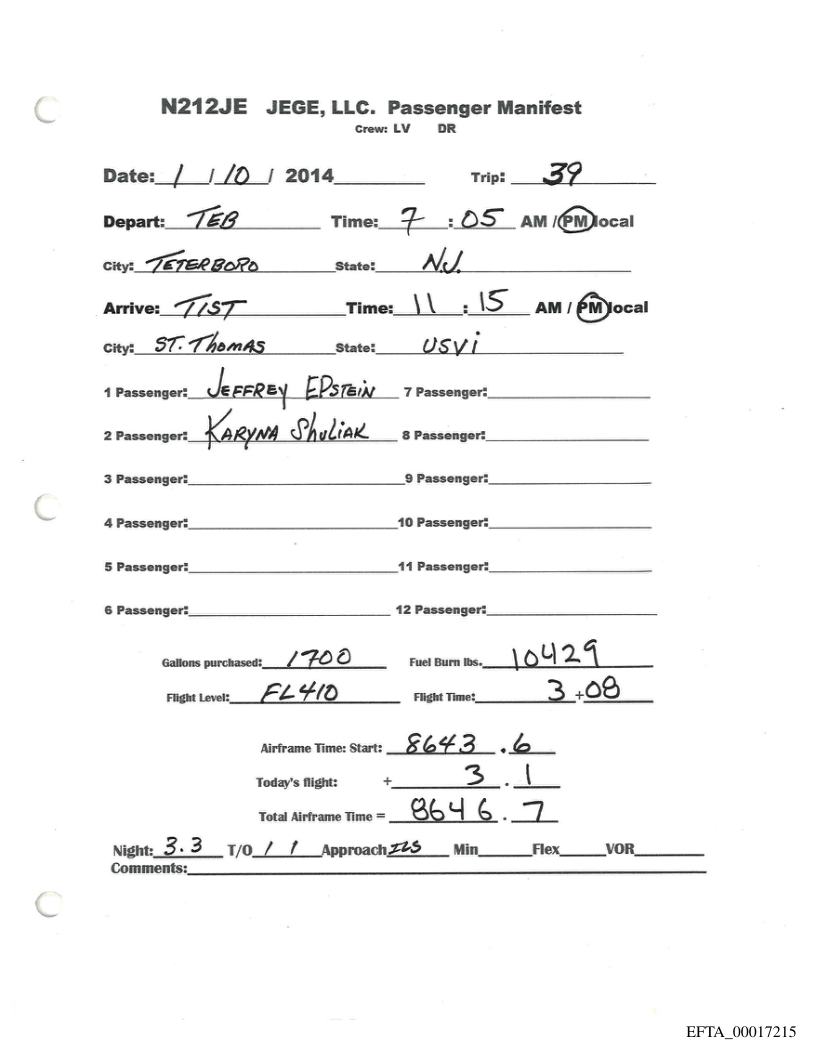 N212JE JEGE, LLC. Passenger Manifest
Crew: LV DR
Date: 1 / 10 / 2014 Trip: 39
Depart: TEB Time: 7 : 05 AM / PM local
City: TETERBORO State: NJ.
Arrive: TIST Time: 11 : 15 AM / PM local
City: ST. THOMAS State: USVI
1 Passenger: JEFFREY EPSTEIN 7 Passenger:
2 Passenger: KARYNA SHULIAK 8 Passenger:
3 Passenger: 9 Passenger:
4 Passenger: 10 Passenger:
5 Passenger: 11 Passenger:
6 Passenger: 12 Passenger:
Gallons purchased: 1700 Fuel Burn lbs. 10429
Flight Level: FL410 Flight Time: 3 +08
Airframe Time: Start: 8643 .6
Today's flight: + 3 . 1
Total Airframe Time = 8646 . 7
Night: 3.3 T/O 1 1 Approach ILS Min Flex VOR
Comments:
EFTA_00017215